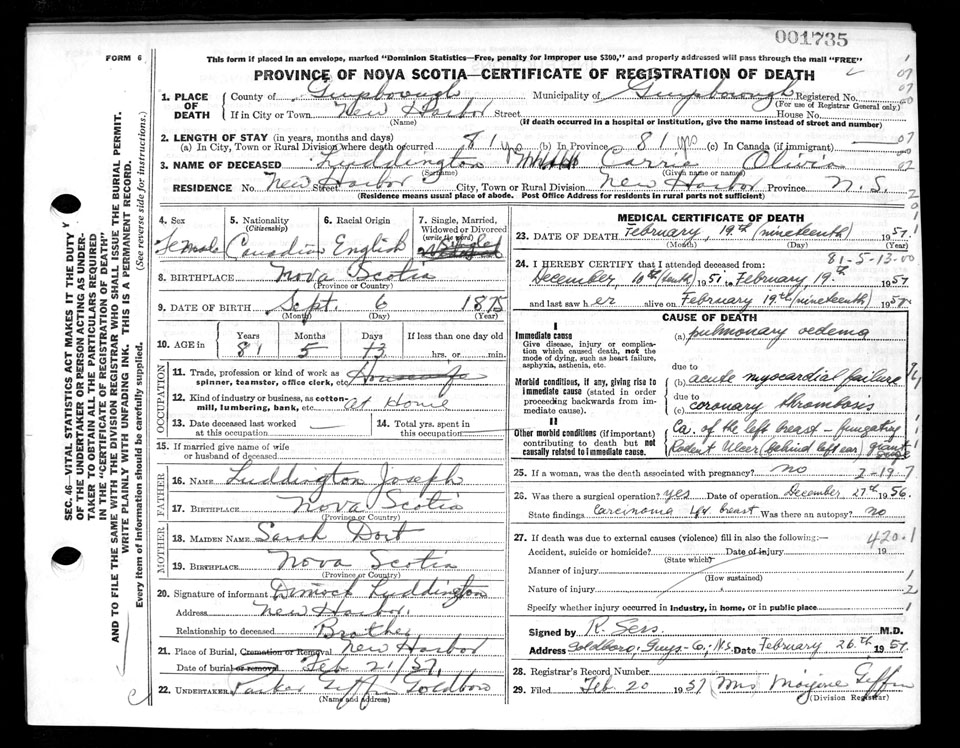 001735
FORM 6
This form if placed in an envelope, marked "Dominion Statistics—Free, penalty for improper use $300," and properly addressed will pass through the mail "FREE"
PROVINCE OF NOVA SCOTIA—CERTIFICATE OF REGISTRATION OF DEATH
1. PLACE OF DEATH County of Guysborough Municipality of Guysborough Registered No.
(For use of Registrar General only)
If in City or Town New Harbor Street House No.
(Name) (If death occurred in a hospital or institution, give the name instead of street and number)
2. LENGTH OF STAY (in years, months and days)
(a) In City, Town or Rural Division where death occurred 81 yrs (b) In Province 81 yrs (c) In Canada (if immigrant)
3. NAME OF DECEASED Luddington Carrie Olivia
(Surname) (Given name or names)
RESIDENCE No. New Harbor Street City, Town or Rural Division New Harbor Province N.S.
(Residence means usual place of abode. Post Office Address for residents in rural parts not sufficient)
4. Sex 5. Nationality (Citizenship) 6. Racial Origin 7. Single, Married, Widowed or Divorced (write the word)
Female Canadian English
8. BIRTHPLACE Nova Scotia
(Province or Country)
9. DATE OF BIRTH Sept. 6 1875
(Month) (Day) (Year)
10. AGE in Years Months Days If less than one day old
81 5 13 hrs. or min.
OCCUPATION
11. Trade, profession or kind of work as spinner, teamster, office clerk, etc. Housewife
12. Kind of industry or business, as cotton-mill, lumbering, bank, etc. At Home
13. Date deceased last worked at this occupation 14. Total yrs. spent in this occupation
15. If married give name of wife or husband of deceased
FATHER
16. Name Luddington Joseph
17. Birthplace Nova Scotia
(Province or Country)
MOTHER
18. Maiden Name Sarah Dort
19. Birthplace Nova Scotia
(Province or Country)
20. Signature of informant Dimock Luddington
Address New Harbor.
Relationship to deceased Brother
21. Place of Burial, Cremation or Removal New Harbor
Date of burial or removal Feb 21/57.
22. Undertaker Parker Giffin Goldboro
(Name and address)
MEDICAL CERTIFICATE OF DEATH
23. DATE OF DEATH February, 19th (nineteenth) 1957
(Month) (Day) (Year)
81-5-13-00
24. I HEREBY CERTIFY that I attended deceased from:
December, 10th (tenth) 1951 to February, 19th 1957
and last saw her alive on February 19th (nineteenth) 1957
CAUSE OF DEATH
I
Immediate cause (a) pulmonary oedema
Give disease, injury or complication which caused death, not the mode of dying, such as heart failure, asphyxia, asthenia, etc.
due to
Morbid conditions, if any, giving rise to immediate cause (stated in order proceeding backwards from immediate cause)
(b) acute myocardial failure
due to
(c) coronary thrombosis
II
Other morbid conditions (if important) contributing to death but not causally related to immediate cause.
Ca. of the left breast – fungating
Rodent Ulcer (behind left ear, giant
25. If a woman, was the death associated with pregnancy? no 2-19-7
26. Was there a surgical operation? yes Date of operation December 27th 1956.
State findings Carcinoma left breast Was there an autopsy? no
27. If death was due to external causes (violence) fill in also the following:— 420.1
Accident, suicide or homicide? Date of injury 19
(State which)
Manner of injury
(How sustained)
Nature of injury
Specify whether injury occurred in industry, in home, or in public place
Signed by R. Sers M.D.
Address Goldboro, Guys-Co., N.S. Date February 26th 1957.
28. Registrar's Record Number
29. Filed Feb 20 1957 Mrs Giffin
(Division Registrar)
SEC. 46—VITAL STATISTICS ACT MAKES IT THE DUTY OF THE UNDERTAKER OR PERSON ACTING AS UNDERTAKER TO OBTAIN ALL THE PARTICULARS REQUIRED IN THE "CERTIFICATE OF REGISTRATION OF DEATH" AND TO FILE THE SAME WITH THE DIVISION REGISTRAR WHO SHALL ISSUE THE BURIAL PERMIT.
WRITE PLAINLY WITH UNFADING INK. THIS IS A PERMANENT RECORD.
Every item of information should be carefully supplied. (See reverse side for instructions.)